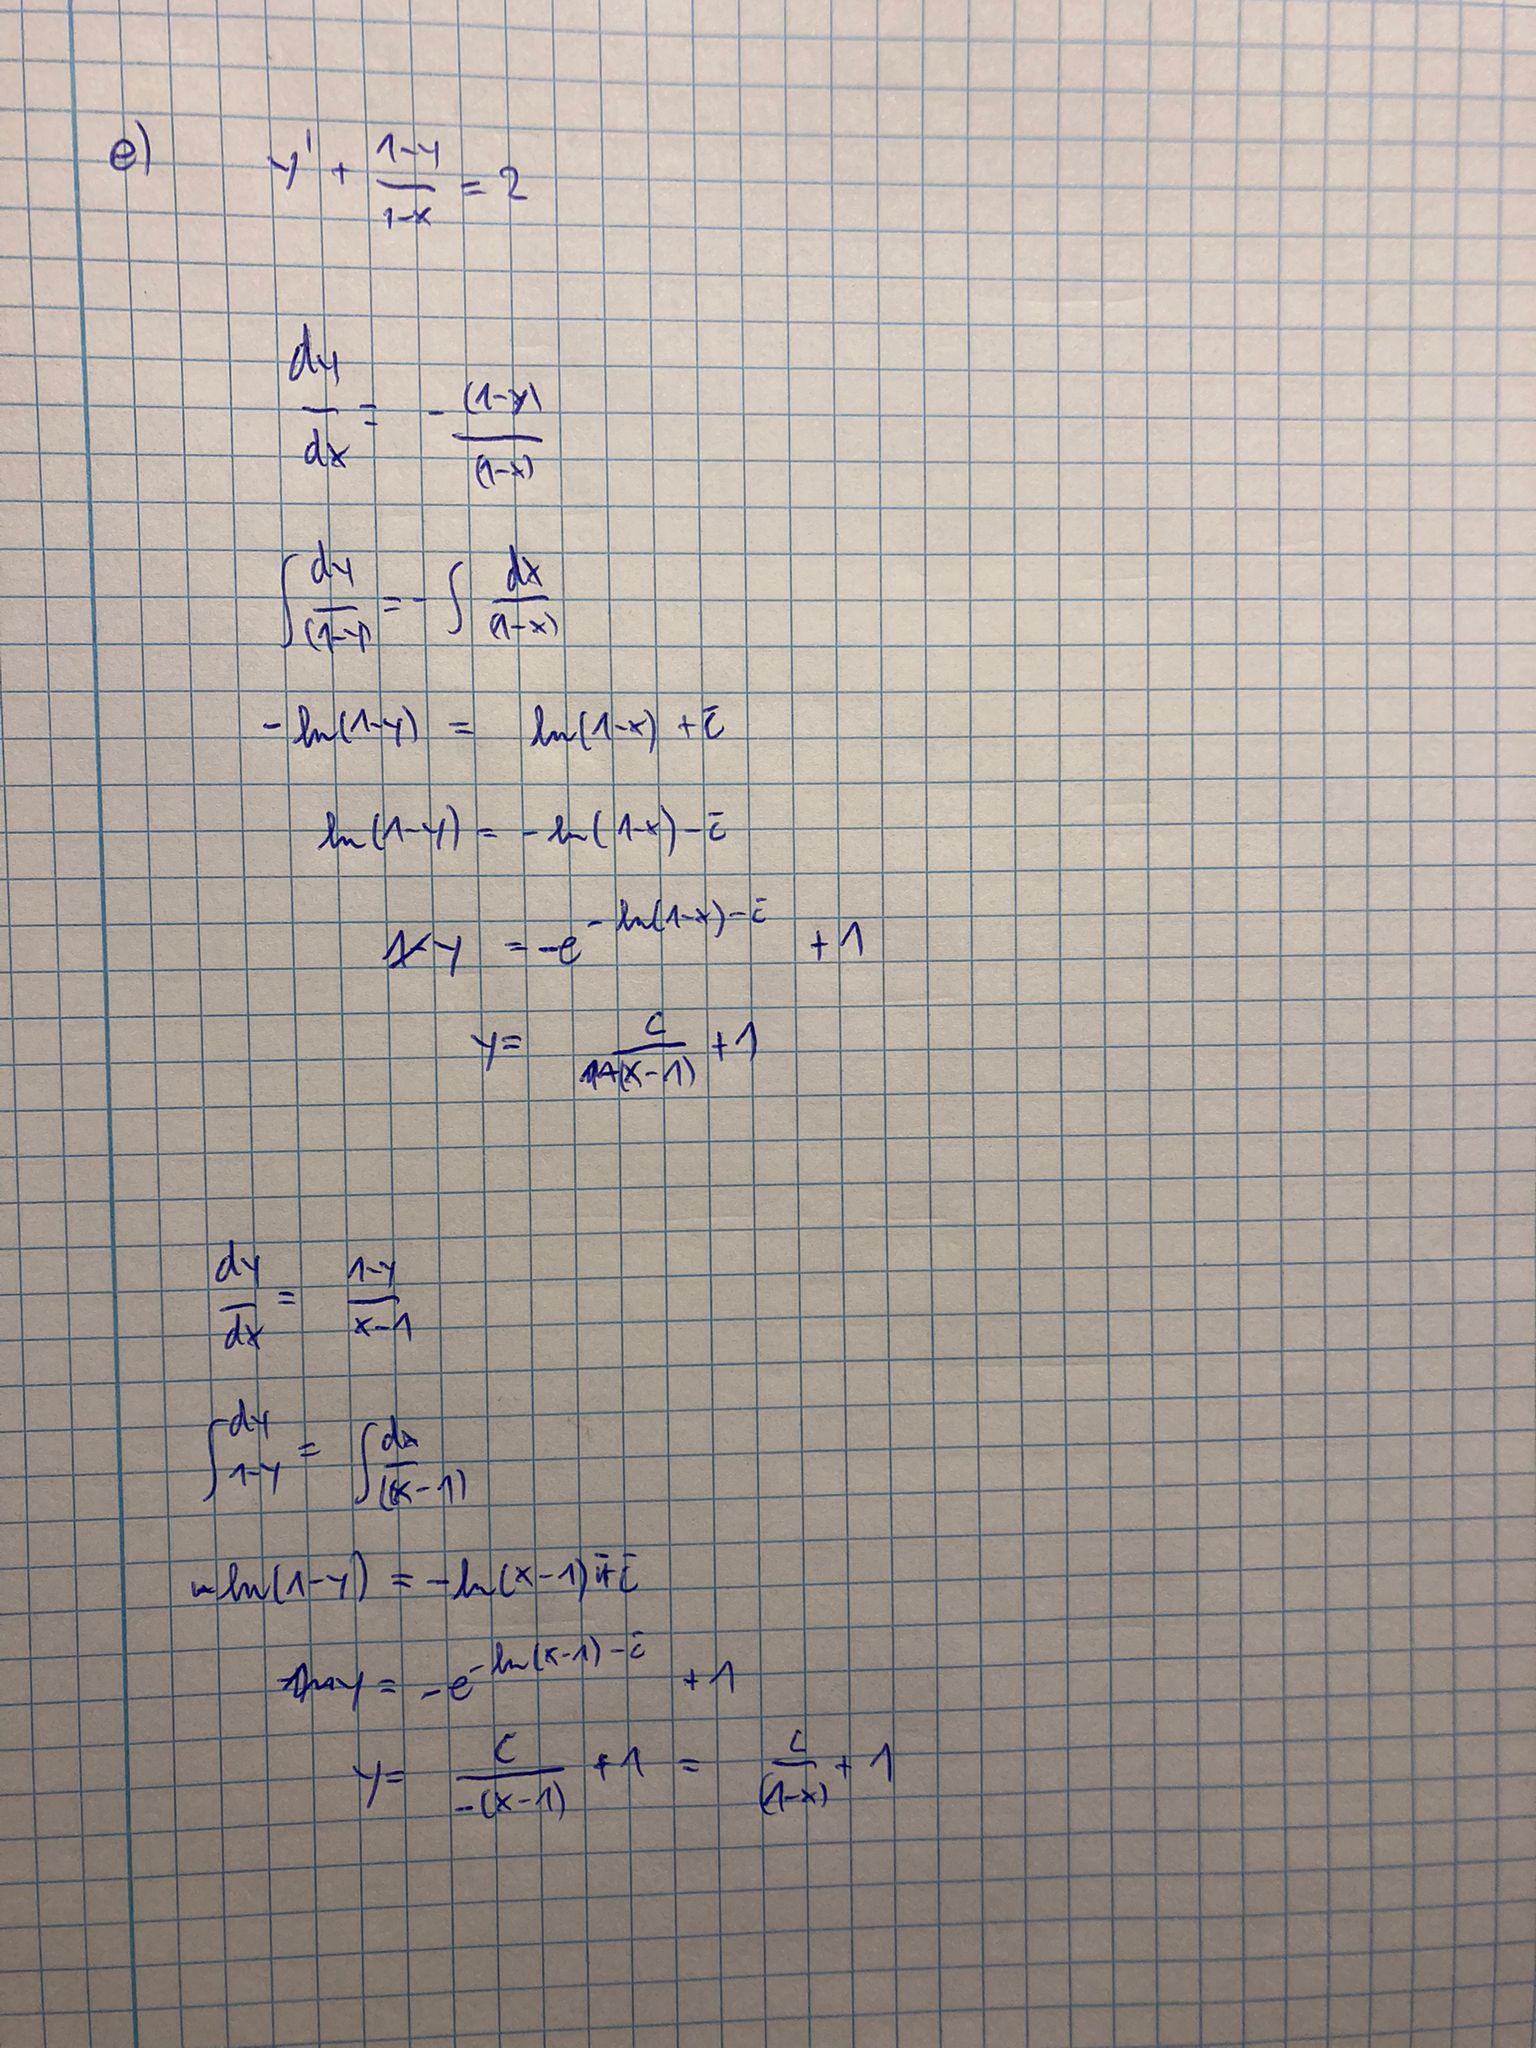 e) y' + (1-y)/(1-x) = 2
dy/dx = - (1-y)/(1-x)
∫ dy/(1-y) = - ∫ dx/(1-x)
-ln(1-y) = ln(1-x) + c̄
ln(1-y) = -ln(1-x) - c̄
y = -e^(-ln(1-x) - c̄) + 1
y = c/(x-1) + 1
dy/dx = (1-y)/(x-1)
∫ dy/(1-y) = ∫ dx/(x-1)
ln(1-y) = -ln(x-1) + c̄
y = -e^(-ln(x-1) - c̄) + 1
y = c/(-(x-1)) + 1 = c/(1-x) + 1